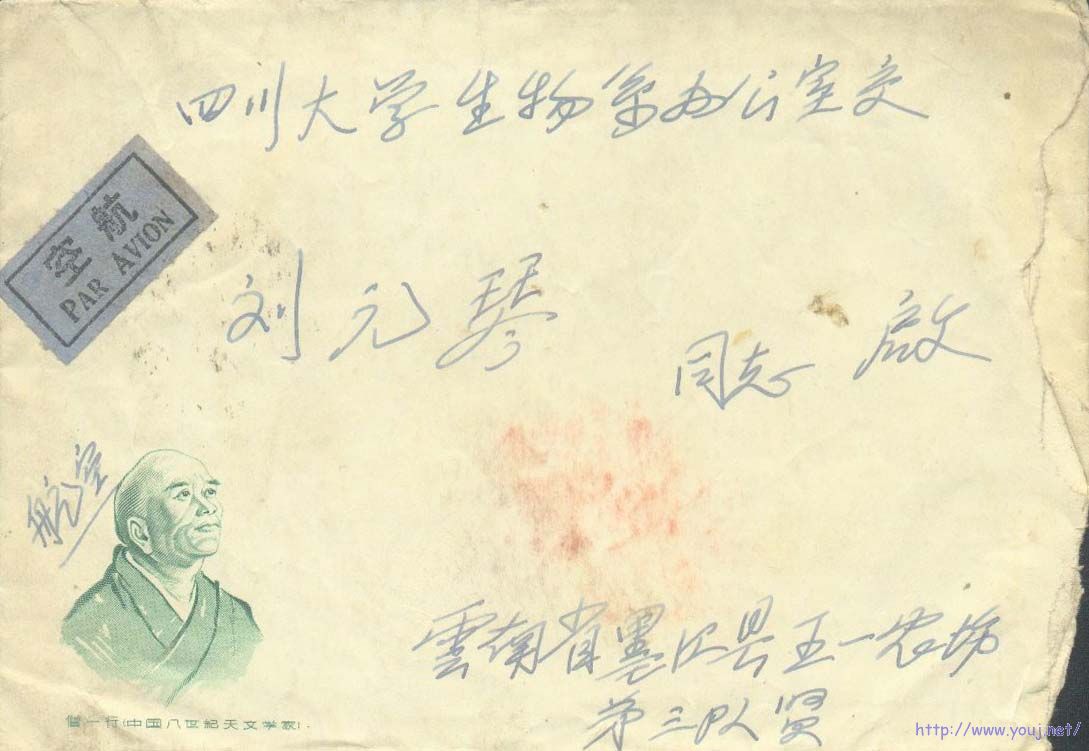 四川大学生物系办公室交
空航
PAR AVION
刘元琴
同志 启
航空
雲南省墨江县五一农场
第三队贤
僧一行(中国八世紀天文学家)
http://www.youj.net/